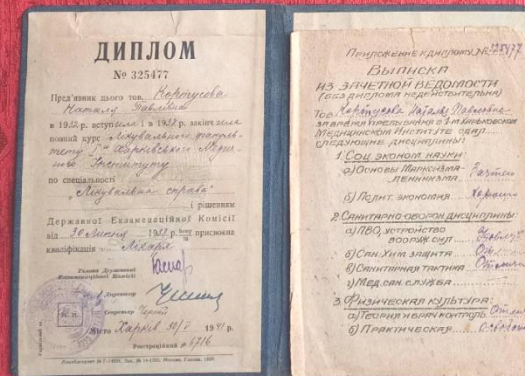 ДИПЛОМ
№ 325477
Пред'явник цього тов. Корпусова
Наталя Павлівна
в 1932 вступила і в 1937 закінчила
повний курс Лікувального факуль-
тету 1го Харківського Медич-
ного Інституту
по спеціальності
"Лікувальна справа"
і рішенням
Державної Екзаменаційної Комісії
від 1937 р. присвоєна
кваліфікація Лікаря
Голова Державної
Екзаменаційної Комісії
Директор
Секретар
М. П.
Місто Харків 30/V 1941 р.
Реєстраційний № 6716
Приложение к диплому № 325477
Выписка
из зачетной ведомости
(без диплома недействительна)
Тов. Корпусова Наталья Павловна
за время пребывания в 1м Харьковском
Медицинском Институте сдал
следующие дисциплины:
1. Соц. эконом. науки:
а) Основы Марксизма-
Ленинизма
б) Полит. экономия Хорошо
2. Санитарно-оборон. дисциплины:
а) ПВО, устройство
вооруж. сил
б) Сан. хим. защита Отл
в) Санитарная тактика Отлично
г) Мед. сан. служба
3. Физическая культура:
а) Теория и врач. контроль Отли
б) Практическая